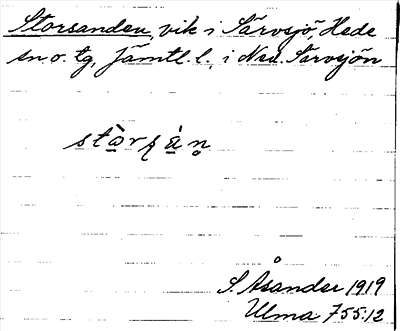 Storsanden, vik i Särvsjö, Hede
sn o. tg, Jämtl. l., i Ned. Särvsjön
S. Åsander 1919
Ulma 755:12